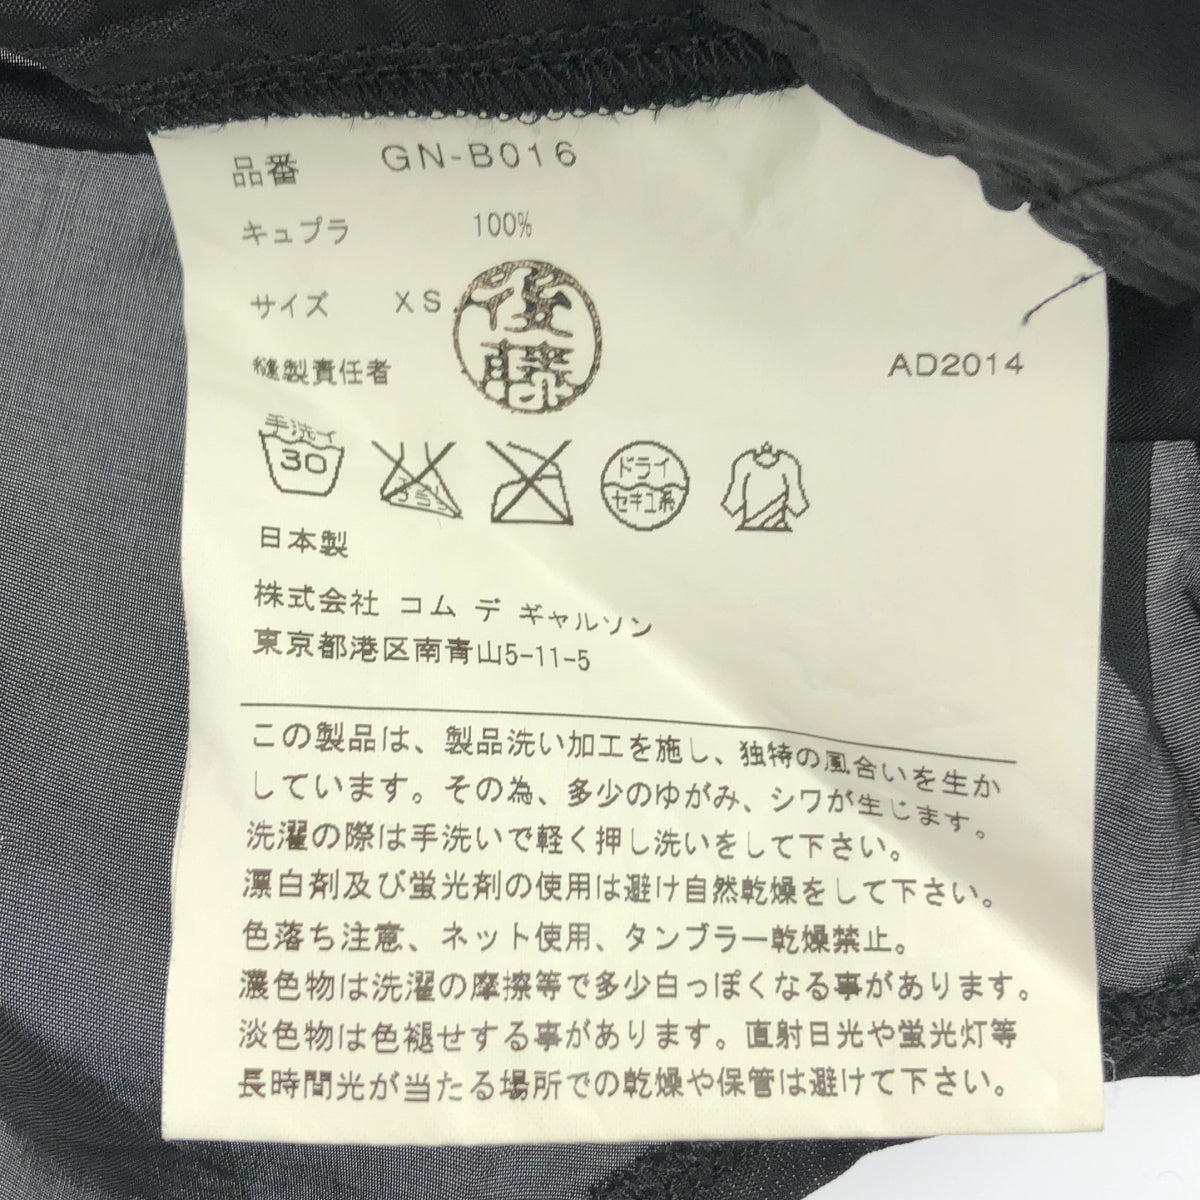 品番 GN-B016
キュプラ 100%
サイズ XS
後藤
縫製責任者
AD2014
手洗イ
30
エンソサラシ
ドライ
セキユ系
日本製
株式会社 コム デ ギャルソン
東京都港区南青山5-11-5
この製品は、製品洗い加工を施し、独特の風合いを生か
しています。その為、多少のゆがみ、シワが生じます。
洗濯の際は手洗いで軽く押し洗いをして下さい。
漂白剤及び蛍光剤の使用は避け自然乾燥をして下さい。
色落ち注意、ネット使用、タンブラー乾燥禁止。
濃色物は洗濯の摩擦等で多少白っぽくなる事があります。
淡色物は色褪せする事があります。直射日光や蛍光灯等
長時間光が当たる場所での乾燥や保管は避けて下さい。